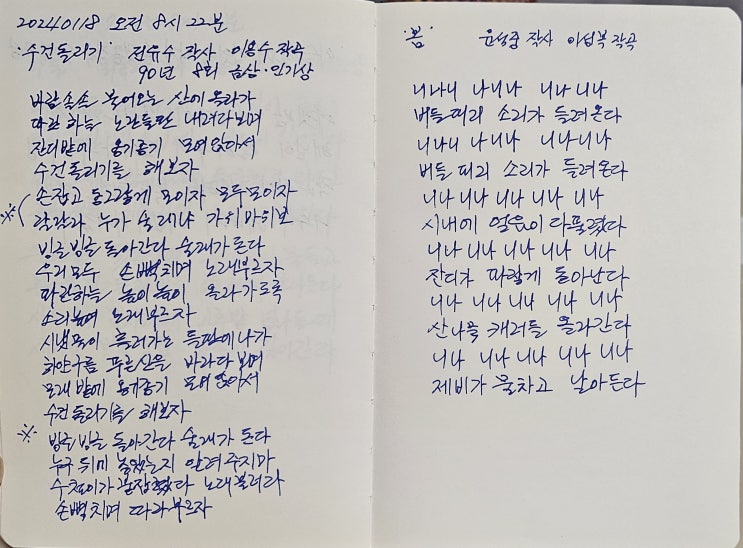 20240118 오전 8시 22분
'수건돌리기' 전유수 작사 이용수 작곡
90년 8회 금상·인기상
바람솔솔 불어오는 산에 올라가
파란하늘 노란들판 내려다보며
잔디밭에 옹기종기 모여앉아서
수건돌리기를 해보자
※ 손잡고 둥그렇게 모이자 모두모이자
랄랄라 누가 술래냐 가위바위보
빙글빙글 돌아간다 술래가 돈다
우리모두 손뼉치며 노래부르자
파란하늘 높이높이 올라가도록
소리높여 노래부르자
시냇물이 흘러가는 들판에나가
하얀구름 푸른산을 바라다보며
모래밭에 옹기종기 모여앉아서
수건돌리기를 해보자
※ 빙글빙글 돌아간다 술래가 돈다
누구 뒤에 놓았는지 알려주지마
수철이가 붙잡혔다 노래불러라
손뼉치며 따라부르자
'봄' 윤석중 작사 이섭복 작곡
니나니 나니나 니나니나
버들피리 소리가 들려온다
니나니 나니나 니나니나
버들 피리 소리가 들려온다
니나 니나 니나 니나 니나
시내에 얼음이 다풀렸다
니나 니나 니나 니나 니나
잔디가 파랗게 돋아난다
니나 니나 니나 니나 니나
산나물 캐러들 올라간다
니나 니나 니나 니나 니나
제비가 물차고 날아든다